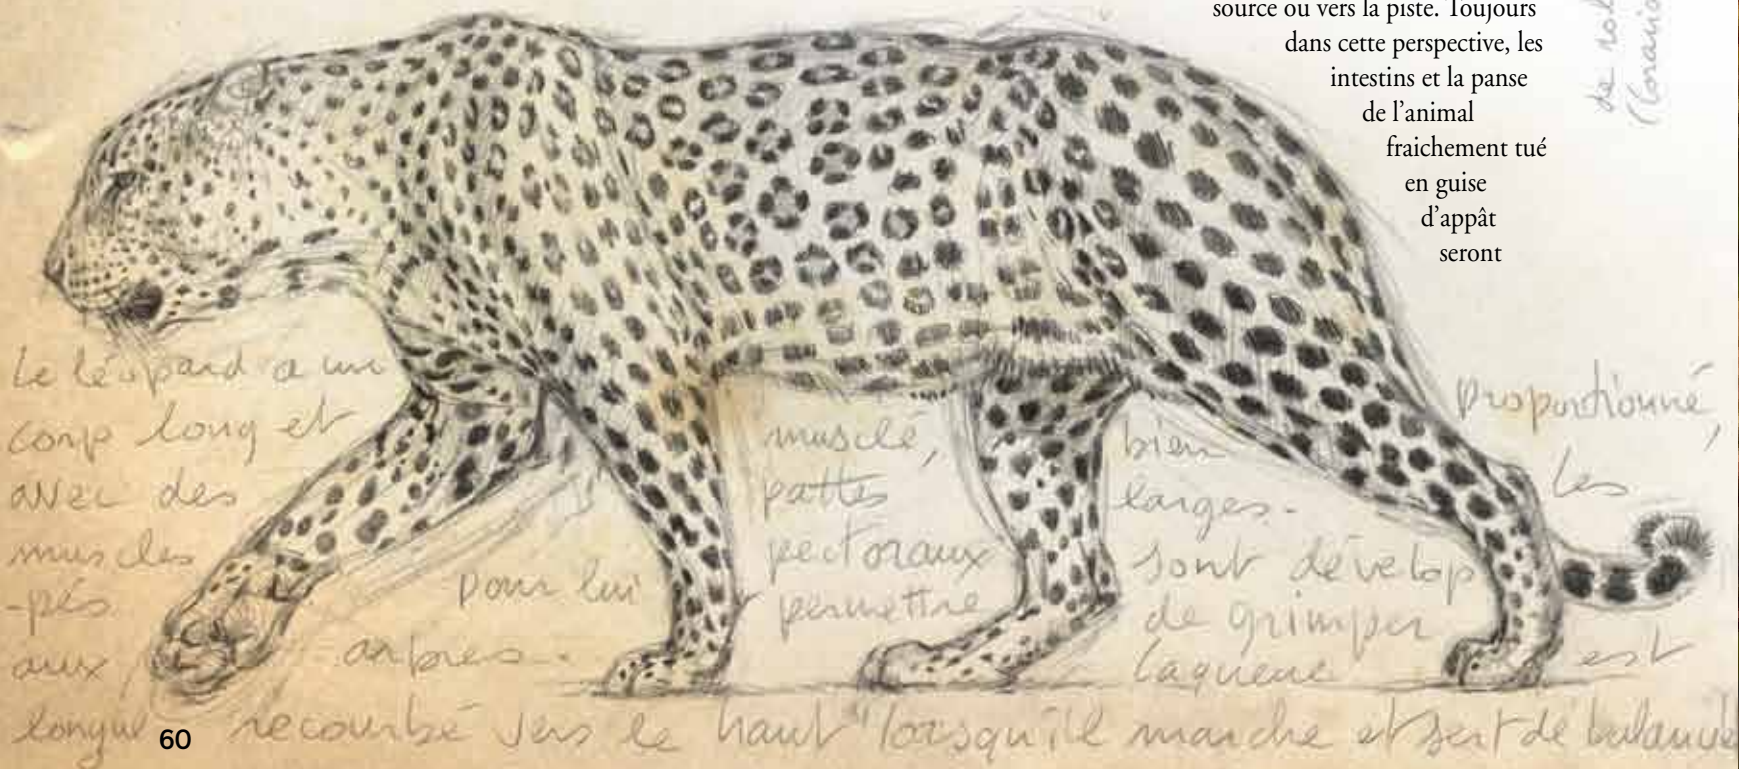 source ou vers la piste. Toujours
dans cette perspective, les
intestins et la panse
de l'animal
fraichement tué
en guise
d'appât
seront
Le léopard a un
corp long et muscle, bien proportionné,
avec des pattes larges. Les
muscles pectoraux sont dévelop
-pés pour lui permettre de grimper
aux arbres. La queue est
longue recourbé vers le haut lorsqu'il marche et sert de
60